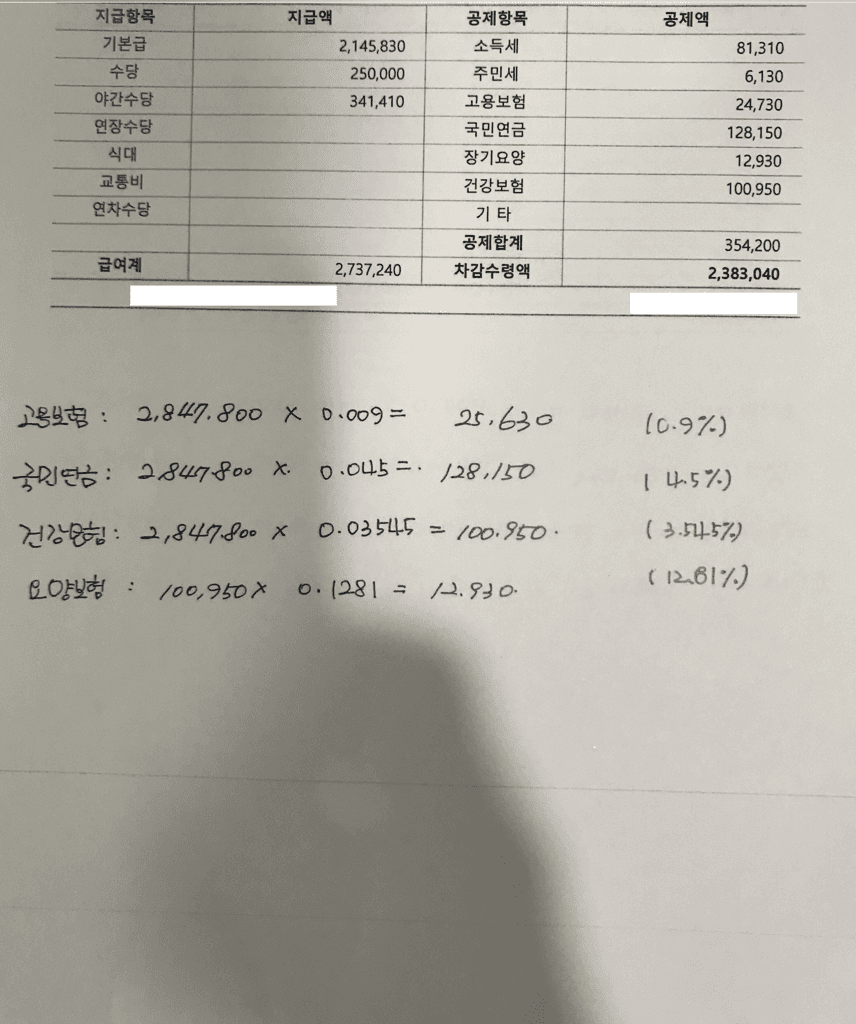 지급항목 지급액 공제항목 공제액
기본급 2,145,830 소득세 81,310
수당 250,000 주민세 6,130
야간수당 341,410 고용보험 24,730
연장수당 국민연금 128,150
식대 장기요양 12,930
교통비 건강보험 100,950
연차수당 기 타
공제합계 354,200
급여계 2,737,240 차감수령액 2,383,040
고용보험 : 2,847.800 × 0.009 = 25.630 (0.9%)
국민연금 : 2847800 ×. 0.045 =. 128,150 (4.5%)
건강보험 : 2,847.800 × 0.03545 = 100.950. (3.545%)
요양보험 : 100,950 × 0.1281 = 12.930. (12.81%)